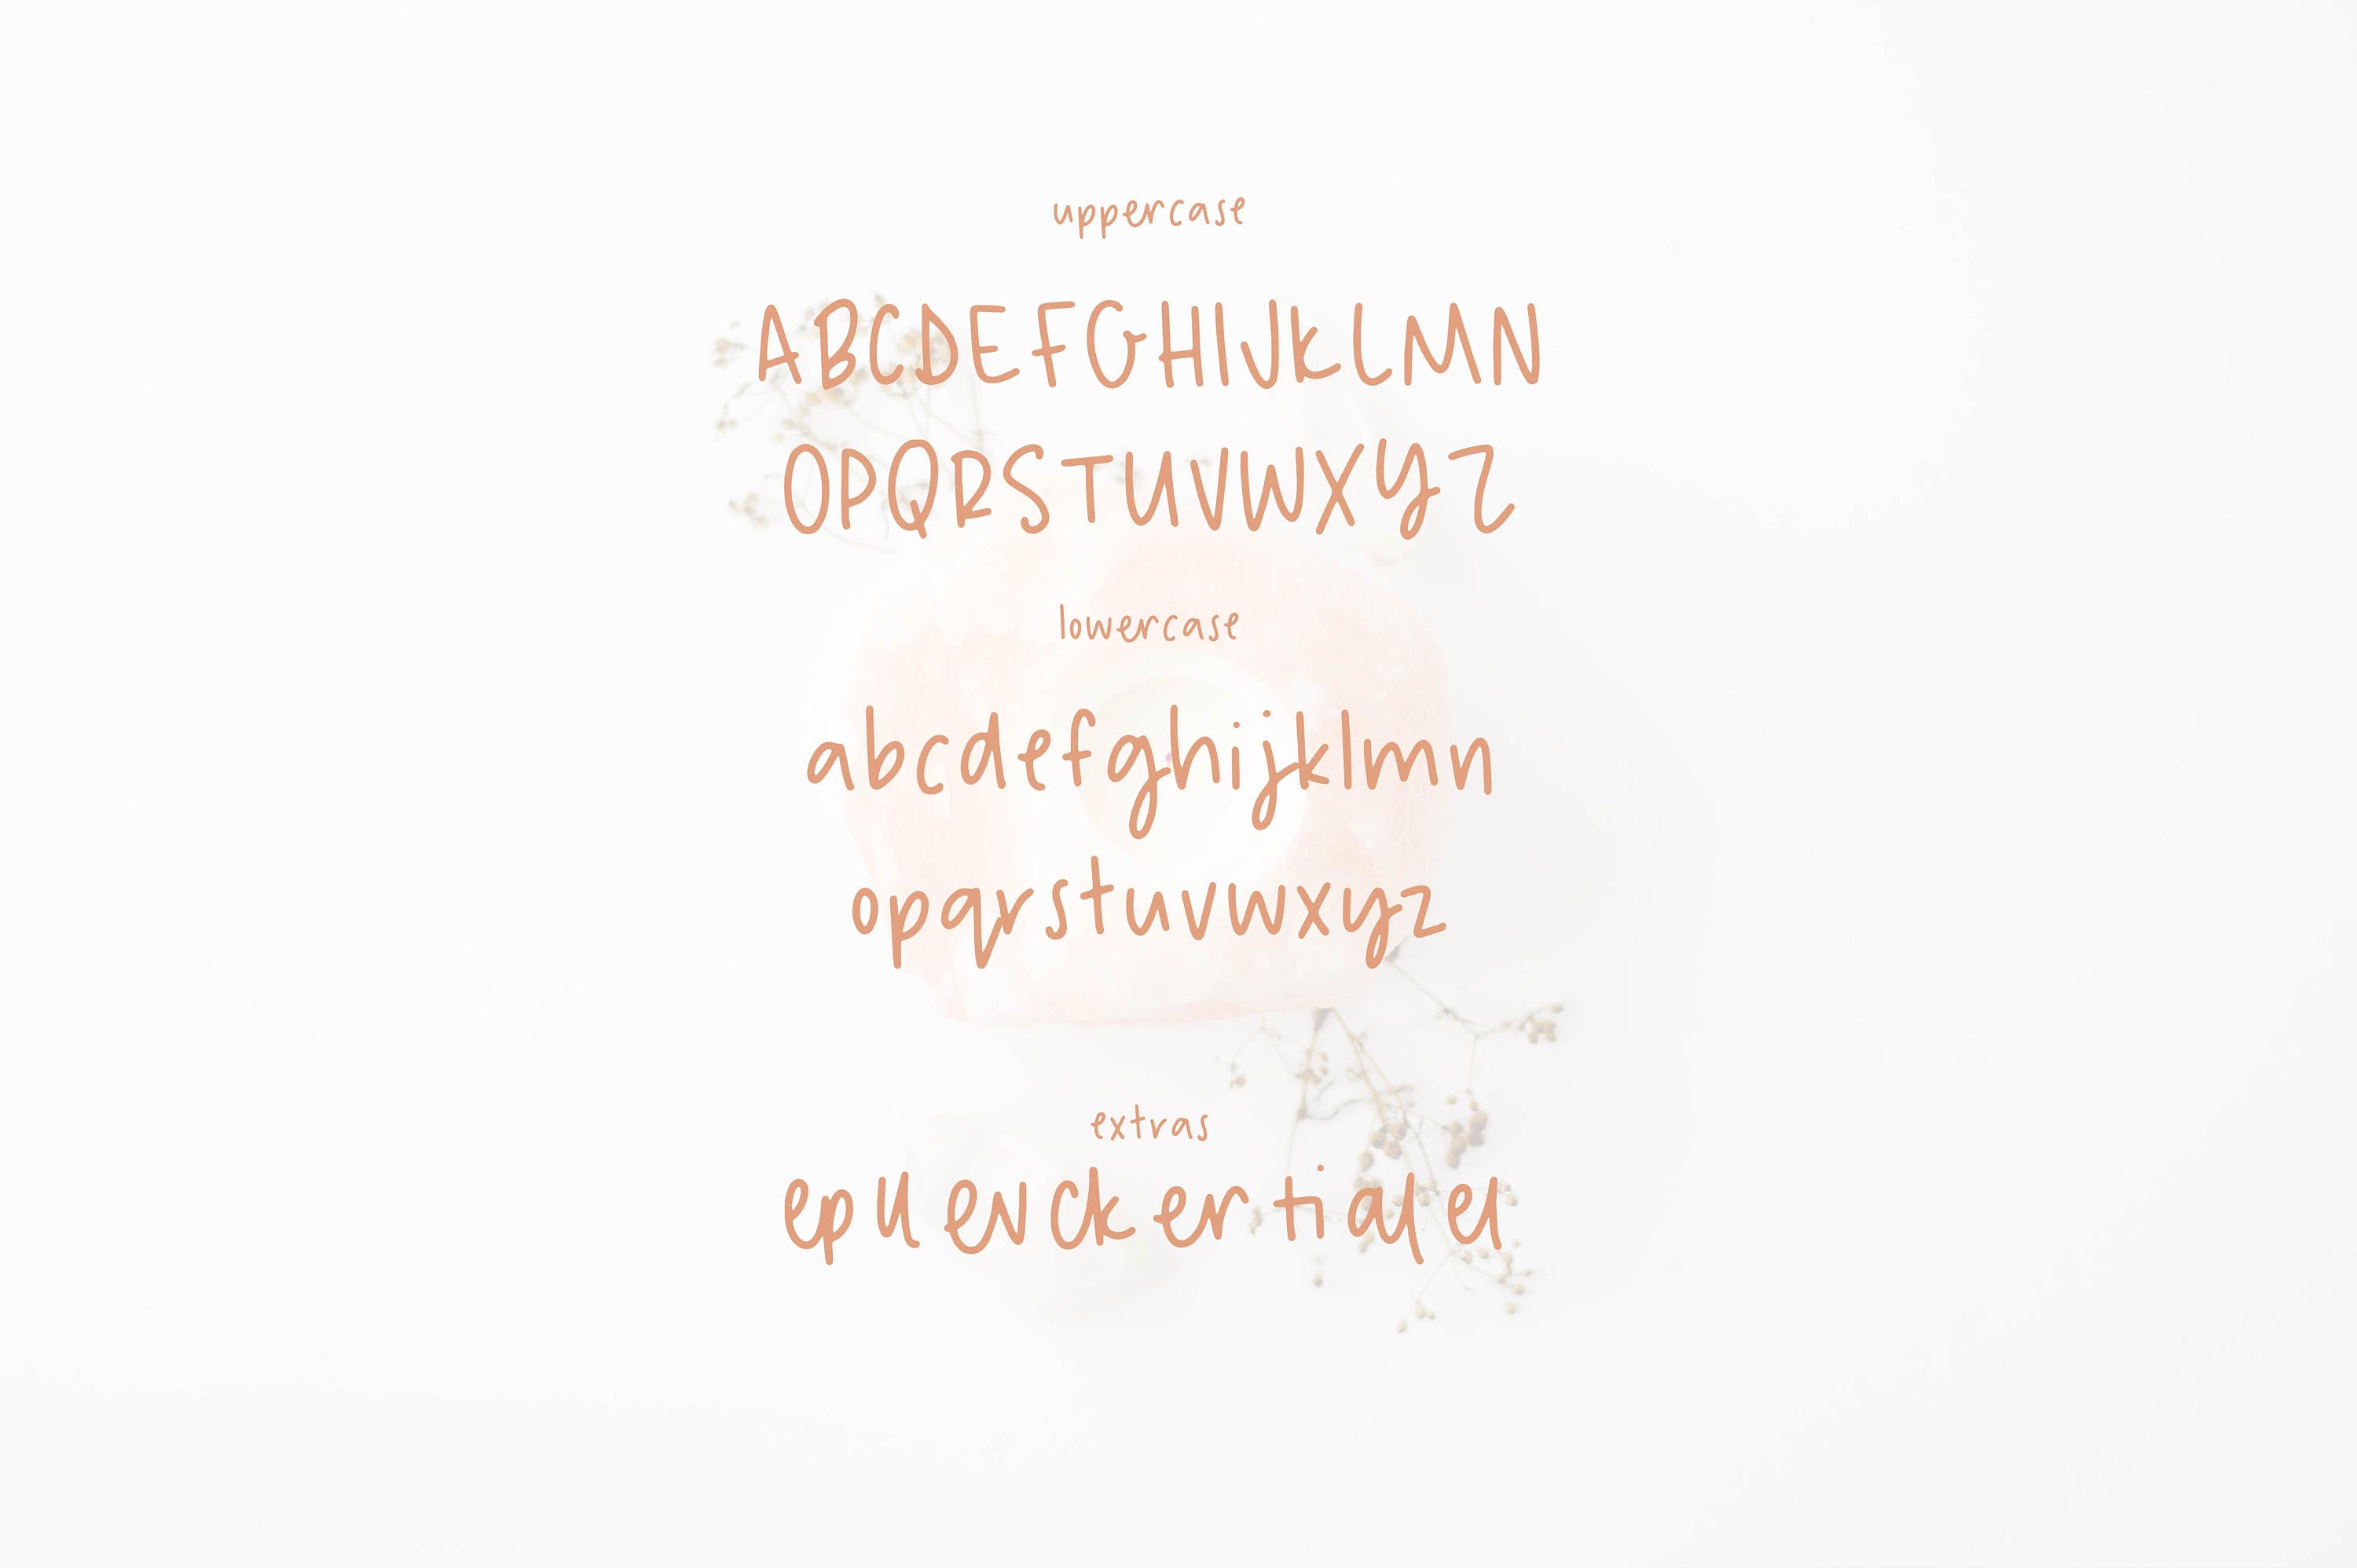 uppercase
ABCDEFGHIJKLMN
OPQRSTUVWXYZ
lowercase
abcdefghijklmn
opqrstuvwxyz
extras
ep ll ev ck er ti al el